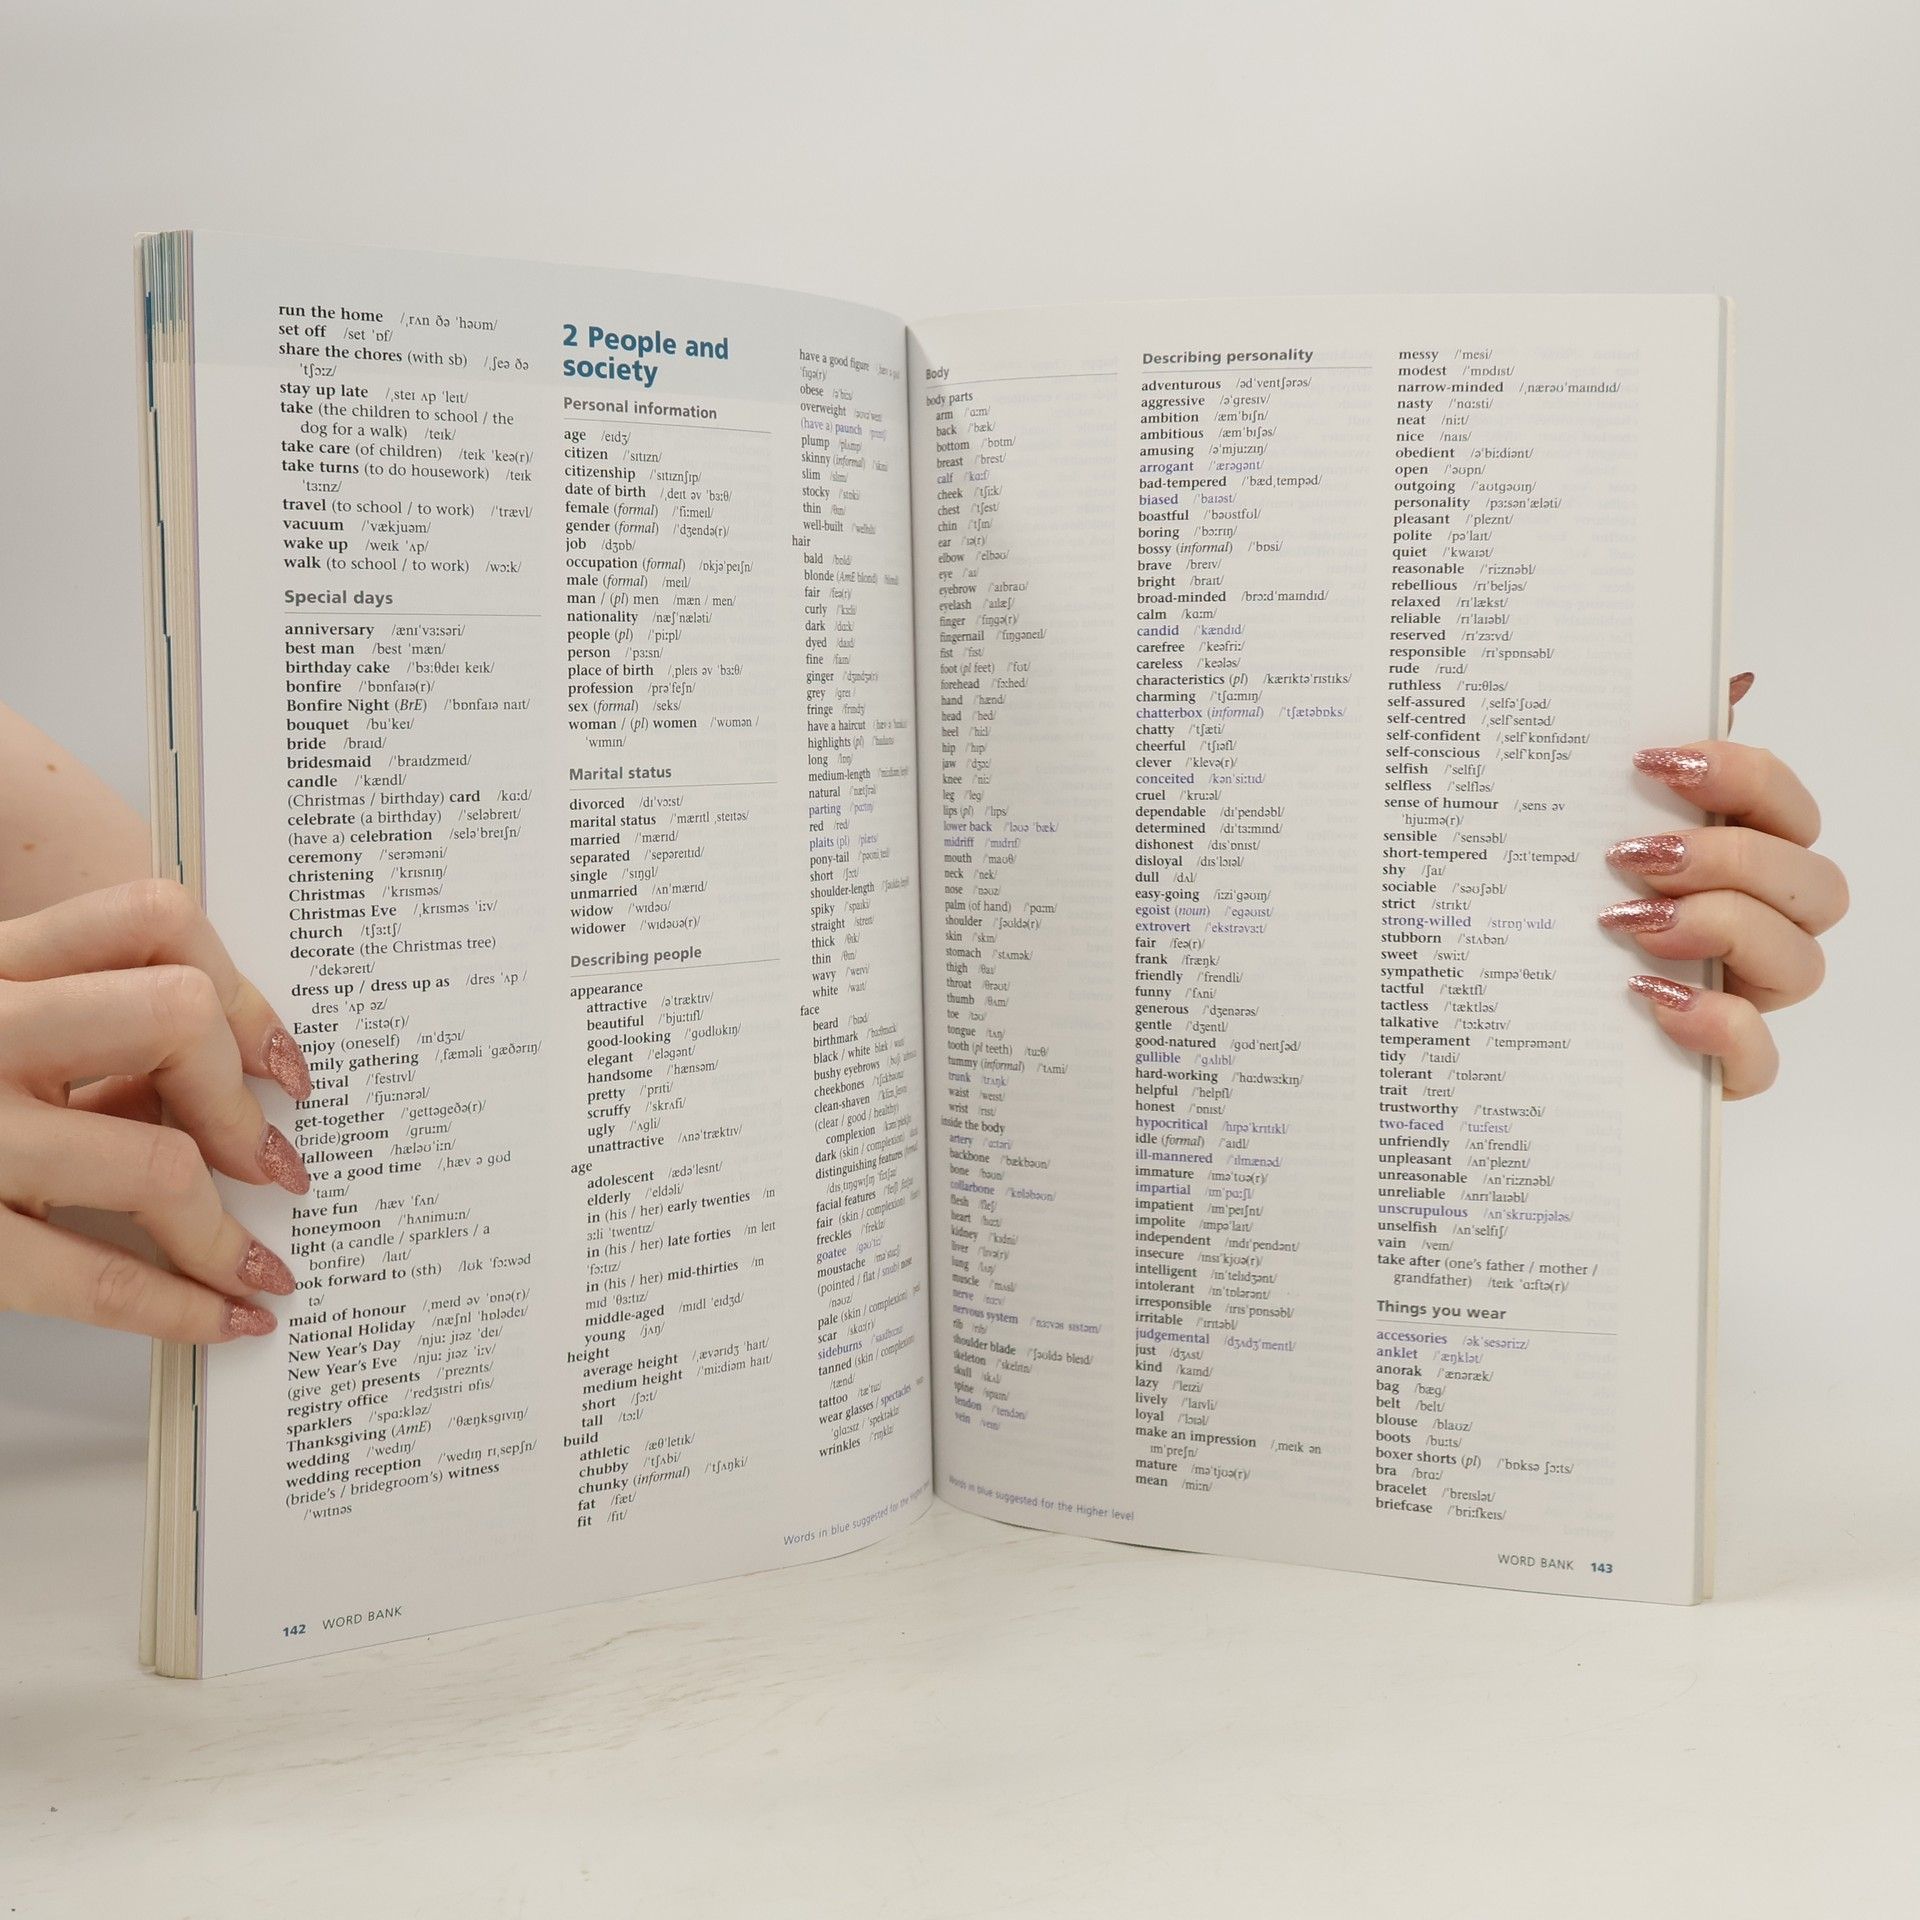 run the home /ˌrʌn ðə ˈhəʊm/
set off /set ˈɒf/
share the chores (with sb) /ˌʃeə ðə
ˈtʃɔːz/
stay up late /ˌsteɪ ʌp ˈleɪt/
take (the children to school / the
dog for a walk) /teɪk/
take care (of children) /teɪk ˈkeə(r)/
take turns (to do housework) /teɪk
ˈtɜːnz/
travel (to school / to work) /ˈtrævl/
vacuum /ˈvækjuəm/
wake up /weɪk ˈʌp/
walk (to school / to work) /wɔːk/
Special days
anniversary /ænɪˈvɜːsəri/
best man /best ˈmæn/
birthday cake /ˈbɜːθdeɪ keɪk/
bonfire /ˈbɒnfaɪə(r)/
Bonfire Night (BrE) /ˈbɒnfaɪə naɪt/
bouquet /buˈkeɪ/
bride /braɪd/
bridesmaid /ˈbraɪdzmeɪd/
candle /ˈkændl/
(Christmas / birthday) card /kɑːd/
celebrate (a birthday) /ˈseləbreɪt/
(have a) celebration /seləˈbreɪʃn/
ceremony /ˈserəməni/
christening /ˈkrɪsnɪŋ/
Christmas /ˈkrɪsməs/
Christmas Eve /ˌkrɪsməs ˈiːv/
church /tʃɜːtʃ/
decorate (the Christmas tree)
/ˈdekəreɪt/
dress up / dress up as /dres ˈʌp /
dres ˈʌp əz/
Easter /ˈiːstə(r)/
enjoy (oneself) /ɪnˈdʒɔɪ/
mily gathering /ˌfæməli ˈgæðərɪŋ/
stival /ˈfestɪvl/
funeral /ˈfjuːnərəl/
get-together /ˈgettəgeðə(r)/
(bride)groom /gruːm/
Halloween /hæləʊˈiːn/
ve a good time /ˌhæv ə gʊd
ˈtaɪm/
have fun /hæv ˈfʌn/
honeymoon /ˈhʌnimuːn/
light (a candle / sparklers / a
bonfire) /laɪt/
ook forward to (sth) /lʊk ˈfɔːwəd
tə/
maid of honour /ˌmeɪd əv ˈɒnə(r)/
National Holiday /næʃnl ˈhɒlədeɪ/
New Year's Day /njuː jɪəz ˈdeɪ/
New Year's Eve /njuː jɪəz ˈiːv/
(give get) presents /ˈpreznts/
registry office /ˈredʒɪstri ɒfɪs/
sparklers /ˈspɑːkləz/
Thanksgiving (AmE) /ˈθæŋksgɪvɪŋ/
wedding /ˈwedɪŋ/
wedding reception /ˈwedɪŋ rɪˌsepʃn/
(bride's / bridegroom's) witness
/ˈwɪtnəs
2 People and
society
Personal information
age /eɪdʒ/
citizen /ˈsɪtɪzn/
citizenship /ˈsɪtɪznʃɪp/
date of birth /ˌdeɪt əv ˈbɜːθ/
female (formal) /ˈfiːmeɪl/
gender (formal) /ˈdʒendə(r)/
job /dʒɒb/
occupation (formal) /ɒkjəˈpeɪʃn/
male (formal) /meɪl/
man / (pl) men /mæn / men/
nationality /næʃˈnæləti/
people (pl) /ˈpiːpl/
person /ˈpɜːsn/
place of birth /ˌpleɪs əv ˈbɜːθ/
profession /prəˈfeʃn/
sex (formal) /seks/
woman / (pl) women /ˈwʊmən /
ˈwɪmɪn/
Marital status
divorced /dɪˈvɔːst/
marital status /ˈmærɪtl ˌsteɪtəs/
married /ˈmærɪd/
separated /ˈsepəreɪtɪd/
single /ˈsɪŋgl/
unmarried /ʌnˈmærɪd/
widow /ˈwɪdəʊ/
widower /ˈwɪdəʊə(r)/
Describing people
appearance
attractive /əˈtræktɪv/
beautiful /ˈbjuːtɪfl/
good-looking /ˈgʊdlʊkɪŋ/
elegant /ˈeləgənt/
handsome /ˈhænsəm/
pretty /ˈprɪti/
scruffy /ˈskrʌfi/
ugly /ˈʌgli/
unattractive /ʌnəˈtræktɪv/
age
adolescent /ædəˈlesnt/
elderly /ˈeldəli/
in (his / her) early twenties /ɪn
ɜːli ˈtwentɪz/
in (his / her) late forties /ɪn leɪt
ˈfɔːtɪz/
in (his / her) mid-thirties /ɪn
mɪd ˈθɜːtɪz/
middle-aged /mɪdl ˈeɪdʒd/
young /jʌŋ/
height
average height /ˌævərɪdʒ ˈhaɪt/
medium height /ˈmiːdiəm haɪt/
short /ʃɔːt/
tall /tɔːl/
build
athletic /æθˈletɪk/
chubby /ˈtʃʌbi/
chunky (informal) /ˈtʃʌŋki/
fat /fæt/
fit /fɪt/
have a good figure
ˈfɪgə(r)/
obese
overweight
(have a) paunch
plump
skinny (informal)
slim /slɪm/
stocky
thin /θɪn/
well-built
hair
bald /bɔld/
blonde (AmE blond)
fair /feə(r)/
curly /ˈkɜːli/
dark /dɑːk/
dyed /daɪd/
fine /faɪn/
ginger /ˈdʒɪndʒə(r)/
grey /greɪ/
fringe /frɪndʒ/
have a haircut
highlights (pl)
long /lɒŋ/
medium-length
natural /ˈnætʃrəl/
parting /ˈpɑːtɪŋ/
red /red/
plaits (pl) /plæts/
pony-tail
short /ʃɔːt/
shoulder-length
spiky /ˈspaɪki/
straight /streɪt/
thick /θɪk/
thin /θɪn/
wavy /ˈweɪvi/
white /waɪt/
face
beard /ˈbɪəd/
birthmark
black / white
bushy eyebrows
cheekbones
clean-shaven
(clear / good / healthy)
complexion
dark (skin / complexion)
distinguishing features
facial features
fair (skin / complexion)
freckles /ˈfreklz/
goatee
moustache
(pointed / flat / snub) nose
/nəʊz/
pale (skin / complexion)
scar /skɑː(r)/
sideburns
tanned (skin / complexion)
/tænd/
tattoo
wear glasses / spectacles
wrinkles /ˈrɪŋklz/
Words in blue suggested for the Higher
142 WORD BANK
Body
body parts
arm /ˈɑːm/
back /ˈbæk/
bottom /ˈbɒtm/
breast /ˈbrest/
calf /ˈkɑːf/
cheek /ˈtʃiːk/
chest /ˈtʃest/
chin /ˈtʃɪn/
ear /ˈɪə(r)/
elbow /ˈelbəʊ/
eye /ˈaɪ/
eyebrow /ˈaɪbraʊ/
eyelash /ˈaɪlæʃ/
finger /ˈfɪŋgə(r)/
fingernail /ˈfɪŋgəneɪl/
fist /ˈfɪst/
foot (pl feet) /ˈfʊt/
forehead /ˈfɔːhed/
hand /ˈhænd/
head /ˈhed/
heel /ˈhiːl/
hip /ˈhɪp/
jaw /ˈdʒɔː/
knee /ˈniː/
leg /ˈleg/
lips (pl) /ˈlɪps/
lower back /ˈləʊə ˈbæk/
midriff /ˈmɪdrɪf/
mouth /ˈmaʊθ/
neck /ˈnek/
nose /ˈnəʊz/
palm (of hand) /ˈpɑːm/
shoulder /ˈʃəʊldə(r)/
skin /ˈskɪn/
stomach /ˈstʌmək/
thigh /θaɪ/
throat /θrəʊt/
thumb /θʌm/
toe /təʊ/
tongue /tʌŋ/
tooth (pl teeth) /tuːθ/
tummy (informal) /ˈtʌmi/
trunk /trʌŋk/
waist /weɪst/
wrist /rɪst/
inside the body
artery /ˈɑːtəri/
backbone /ˈbækbəʊn/
bone /bəʊn/
collarbone /ˈkɒləbəʊn/
flesh /fleʃ/
heart /hɑːt/
kidney /ˈkɪdni/
liver /ˈlɪvə(r)/
lung /lʌŋ/
muscle /ˈmʌsl/
nerve /nɜːv/
nervous system /ˈnɜːvəs sɪstəm/
rib /rɪb/
shoulder blade /ˈʃəʊldə bleɪd/
skeleton /ˈskelɪtn/
skull /skʌl/
spine /spaɪn/
tendon /ˈtendən/
vein /veɪn/
Words in blue suggested for the Higher level
Describing personality
adventurous /ədˈventʃərəs/
aggressive /əˈgresɪv/
ambition /æmˈbɪʃn/
ambitious /æmˈbɪʃəs/
amusing /əˈmjuːzɪŋ/
arrogant /ˈærəgənt/
bad-tempered /ˈbædˌtempəd/
biased /ˈbaɪəst/
boastful /ˈbəʊstfʊl/
boring /ˈbɔːrɪŋ/
bossy (informal) /ˈbɒsi/
brave /breɪv/
bright /braɪt/
broad-minded /brɔːdˈmaɪndɪd/
calm /kɑːm/
candid /ˈkændɪd/
carefree /ˈkeəfriː/
careless /ˈkeələs/
characteristics (pl) /kærɪktəˈrɪstɪks/
charming /ˈtʃɑːmɪŋ/
chatterbox (informal) /ˈtʃætəbɒks/
chatty /ˈtʃæti/
cheerful /ˈtʃɪəfl/
clever /ˈklevə(r)/
conceited /kənˈsiːtɪd/
cruel /ˈkruːəl/
dependable /dɪˈpendəbl/
determined /dɪˈtɜːmɪnd/
dishonest /dɪsˈɒnɪst/
disloyal /dɪsˈlɔɪəl/
dull /dʌl/
easy-going /iːziˈgəʊɪŋ/
egoist (noun) /ˈegəʊɪst/
extrovert /ˈekstrəvɜːt/
fair /feə(r)/
frank /fræŋk/
friendly /ˈfrendli/
funny /ˈfʌni/
generous /ˈdʒenərəs/
gentle /ˈdʒentl/
good-natured /gʊdˈneɪtʃəd/
gullible /ˈgʌlɪbl/
hard-working /ˈhɑːdwɜːkɪŋ/
helpful /ˈhelpfl/
honest /ˈɒnɪst/
hypocritical /hɪpəˈkrɪtɪkl/
idle (formal) /ˈaɪdl/
ill-mannered /ˈɪlmænəd/
immature /ɪməˈtʊə(r)/
impartial /ɪmˈpɑːʃl/
impatient /ɪmˈpeɪʃnt/
impolite /ɪmpəˈlaɪt/
independent /ɪndɪˈpendənt/
insecure /ɪnsɪˈkjʊə(r)/
intelligent /ɪnˈtelɪdʒənt/
intolerant /ɪnˈtɒlərənt/
irresponsible /ɪrɪsˈpɒnsəbl/
irritable /ˈɪrɪtəbl/
judgemental /dʒʌdʒˈmentl/
just /dʒʌst/
kind /kaɪnd/
lazy /ˈleɪzi/
lively /ˈlaɪvli/
loyal /ˈlɔɪəl/
make an impression /ˌmeɪk ən
ɪmˈpreʃn/
mature /məˈtjʊə(r)/
mean /miːn/
messy /ˈmesi/
modest /ˈmɒdɪst/
narrow-minded /ˌnærəʊˈmaɪndɪd/
nasty /ˈnɑːsti/
neat /niːt/
nice /naɪs/
obedient /əˈbiːdiənt/
open /ˈəʊpn/
outgoing /ˈaʊtgəʊɪŋ/
personality /pɜːsənˈæləti/
pleasant /ˈpleznt/
polite /pəˈlaɪt/
quiet /ˈkwaɪət/
reasonable /ˈriːznəbl/
rebellious /rɪˈbeljəs/
relaxed /rɪˈlækst/
reliable /rɪˈlaɪəbl/
reserved /rɪˈzɜːvd/
responsible /rɪˈspɒnsəbl/
rude /ruːd/
ruthless /ˈruːθləs/
self-assured /ˌselfəˈʃʊəd/
self-centred /ˌselfˈsentəd/
self-confident /ˌselfˈkɒnfɪdənt/
self-conscious /ˌselfˈkɒnʃəs/
selfish /ˈselfɪʃ/
selfless /ˈselfləs/
sense of humour /ˌsens əv
ˈhjuːmə(r)/
sensible /ˈsensəbl/
short-tempered /ʃɔːtˈtempəd/
shy /ʃaɪ/
sociable /ˈsəʊʃəbl/
strict /strɪkt/
strong-willed /strɒŋˈwɪld/
stubborn /ˈstʌbən/
sweet /swiːt/
sympathetic /sɪmpəˈθetɪk/
tactful /ˈtæktfl/
tactless /ˈtæktləs/
talkative /ˈtɔːkətɪv/
temperament /ˈtemprəmənt/
tidy /ˈtaɪdi/
tolerant /ˈtɒlərənt/
trait /treɪt/
trustworthy /ˈtrʌstwɜːði/
two-faced /ˈtuːfeɪst/
unfriendly /ʌnˈfrendli/
unpleasant /ʌnˈpleznt/
unreasonable /ʌnˈriːznəbl/
unreliable /ʌnrɪˈlaɪəbl/
unscrupulous /ʌnˈskruːpjələs/
unselfish /ʌnˈselfɪʃ/
vain /veɪn/
take after (one's father / mother /
grandfather) /teɪk ˈɑːftə(r)/
Things you wear
accessories /əkˈsesəriːz/
anklet /ˈæŋklət/
anorak /ˈænəræk/
bag /bæg/
belt /belt/
blouse /blaʊz/
boots /buːts/
boxer shorts (pl) /ˈbɒksə ʃɔːts/
bra /brɑː/
bracelet /ˈbreɪslət/
briefcase /ˈbriːfkeɪs/
WORD BANK 143